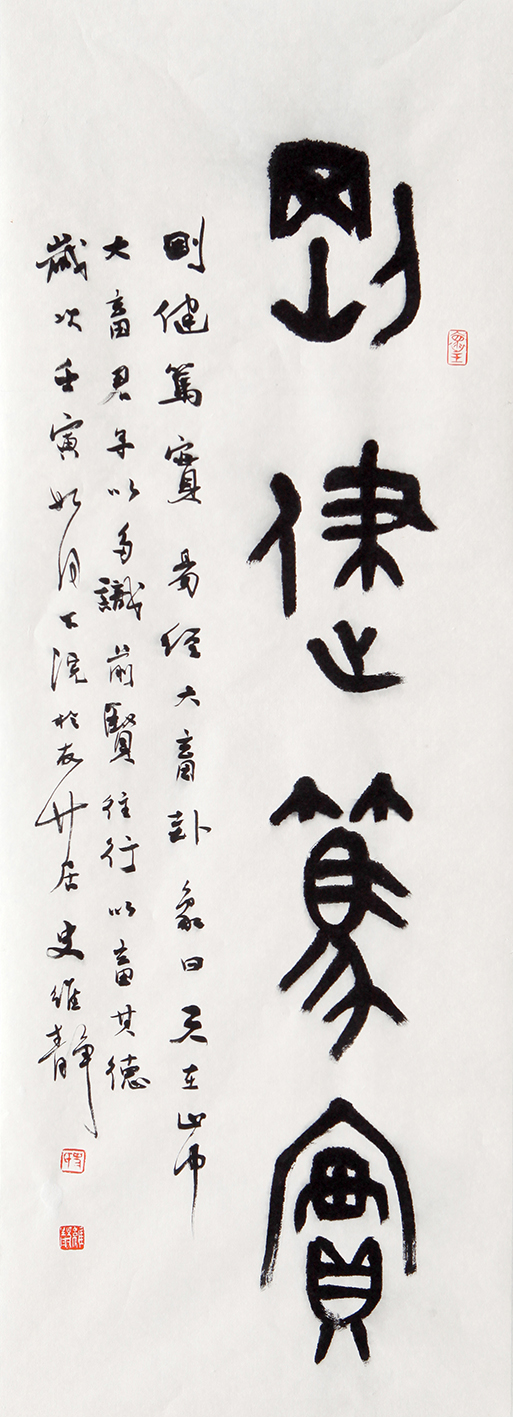 剛健篤實
剛健篤實 易經大畜卦象曰天在山中
大畜君子以多識前賢往行以畜其德
歲次壬寅如月下浣於友竹居史維靜